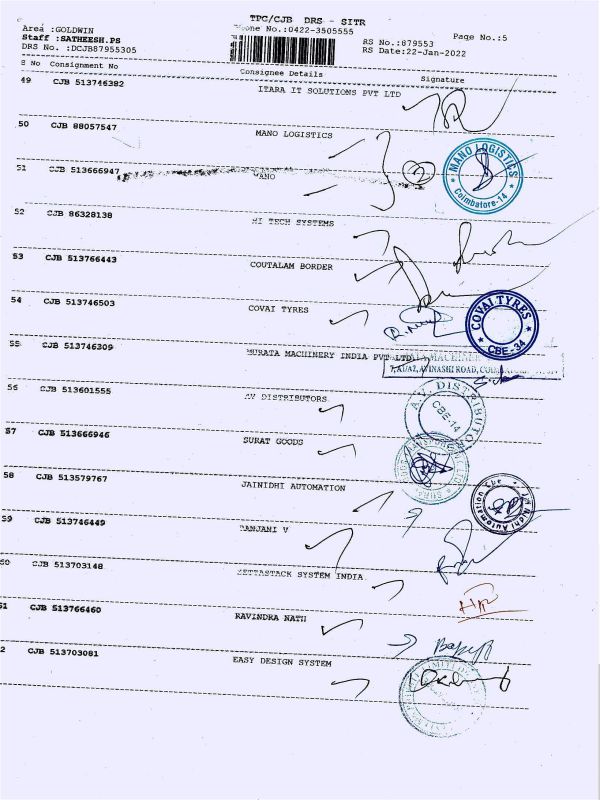 TPC/CJB DRS - SITR
Area :GOLDWIN
Phone No.:0422-3505555
Page No.:5
Staff :SATHEESH.PS
RS No.:879553
DRS No. :DCJB87955305
RS Date:22-Jan-2022
S No Consignment No Consignee Details Signature
49 CJB 513746382 ITARA IT SOLUTIONS PVT LTD
50 CJB 88057547 MANO LOGISTICS
2
MANO LOGISTICS
Coimbatore-14
51 CJB 513666947 MANO
52 CJB 86328138 HI TECH SYSTEMS
53 CJB 513766443 COUTALAM BORDER
54 CJB 513746503 COVAI TYRES
COVAI TYRES
CBE-34
55 CJB 513746309 MURATA MACHINERY INDIA PVT LTD
AVINASHI ROAD,
56 CJB 513601555 AV DISTRIBUTORS
A.V. DISTRIBUTOR
CBE-14
57 CJB 513666946 SURAT GOODS
58 CJB 513579767 JAINIDHI AUTOMATION
Jai Nidhi Automation
59 CJB 513746449 RANJANI V
60 CJB 513703148 METTASTACK SYSTEM INDIA
61 CJB 513766460 RAVINDRA NATH
62 CJB 513703081 EASY DESIGN SYSTEM